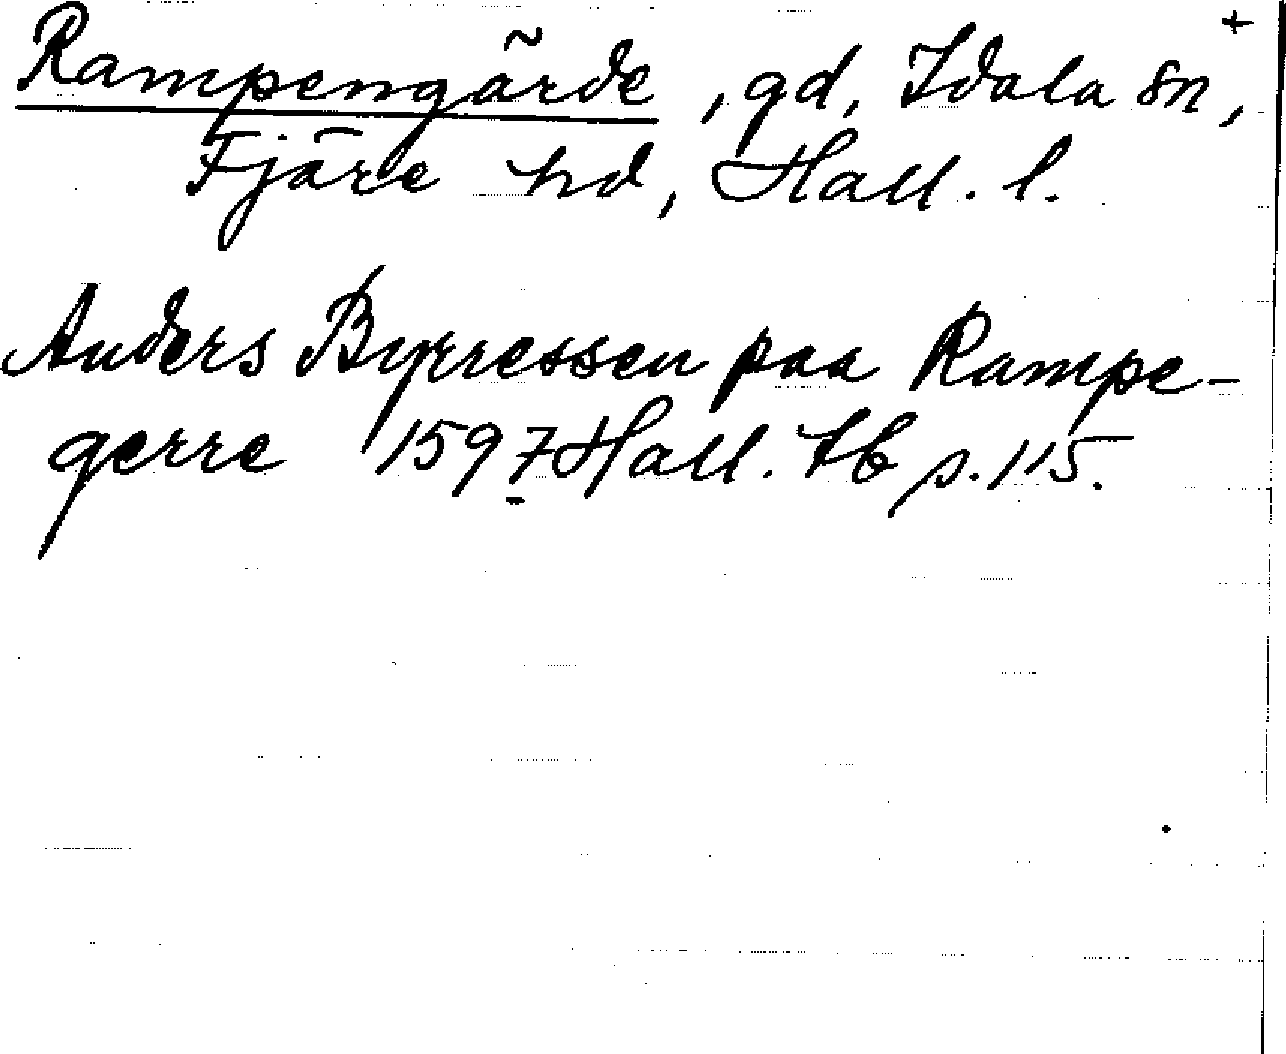 +
Rampengärde, gd, Idala sn,
Fjäre hd, Hall. l.
Anders Byrressen paa Rampe-
gerre 1597 Hall. tb s. 115.